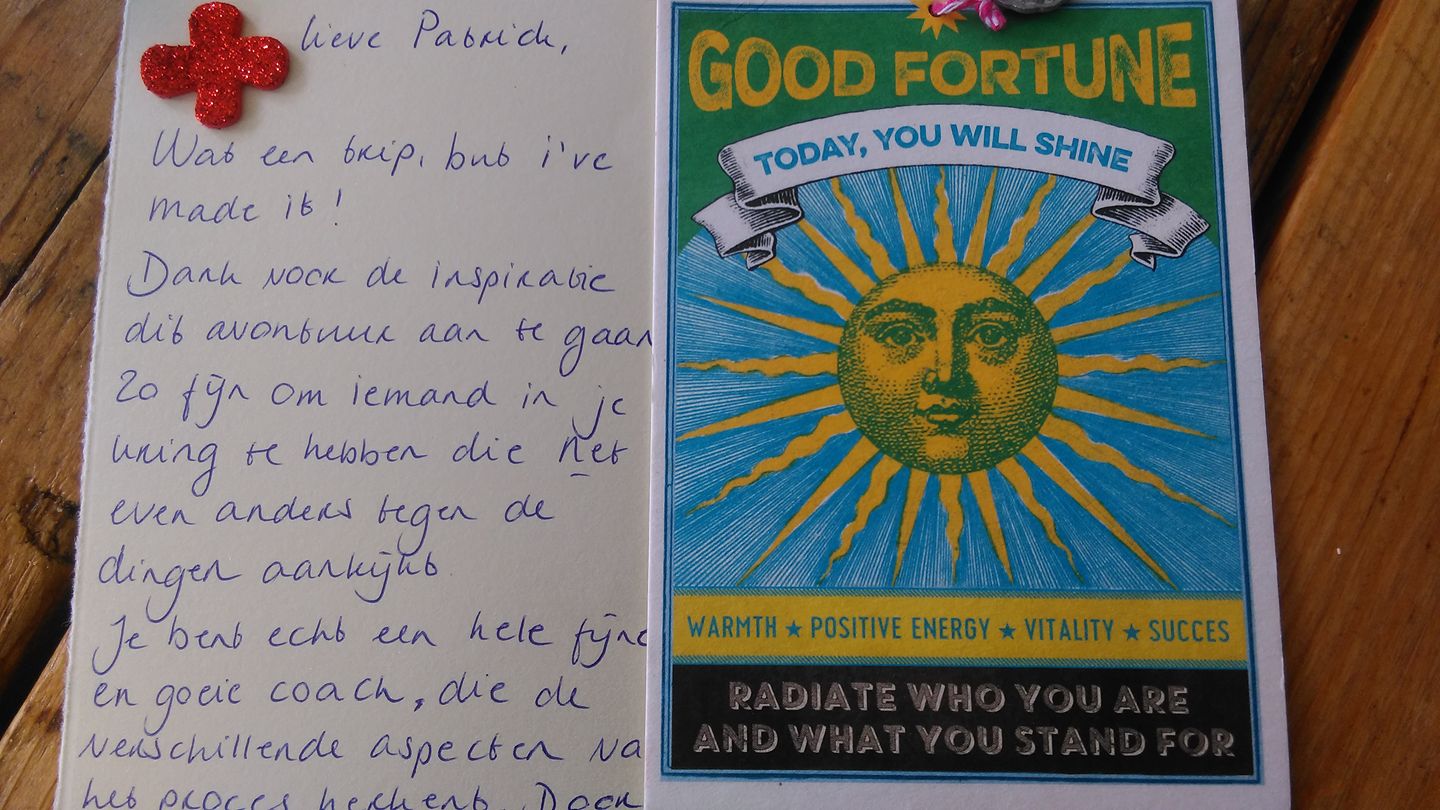 lieve Patrick,
Wat een trip, but i've
made it!
Dank voor de inspiratie
dit avontuur aan te gaan
Zo fijn om iemand in je
kring te hebben die net
even anders tegen de
dingen aankijkt.
Je bent echt een hele fijne
en goeie coach, die de
verschillende aspecten va
het proces herkent. Door
GOOD FORTUNE
TODAY, YOU WILL SHINE
WARMTH ★ POSITIVE ENERGY ★ VITALITY ★ SUCCES
RADIATE WHO YOU ARE
AND WHAT YOU STAND FOR